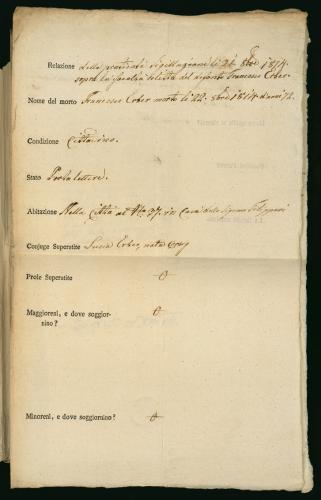 Relazione della praticata sigillazione li 26 8bre 1814.
sopra la facoltà relitta del defonto Francesco Erber.
Nome del morto Francesco Erber morto li 22. 8bre 1814 d'anni 72.
Condizione Cittadino.
Stato Porta lettere.
Abitazione Nella Città al No. 37. in Casa del Signore
Conjuge Superstite Lucia Erber, nata
Prole Superstite 0
Maggioreni, e dove soggior- 0
nino?
Minoreni, e dove soggiornino? 0